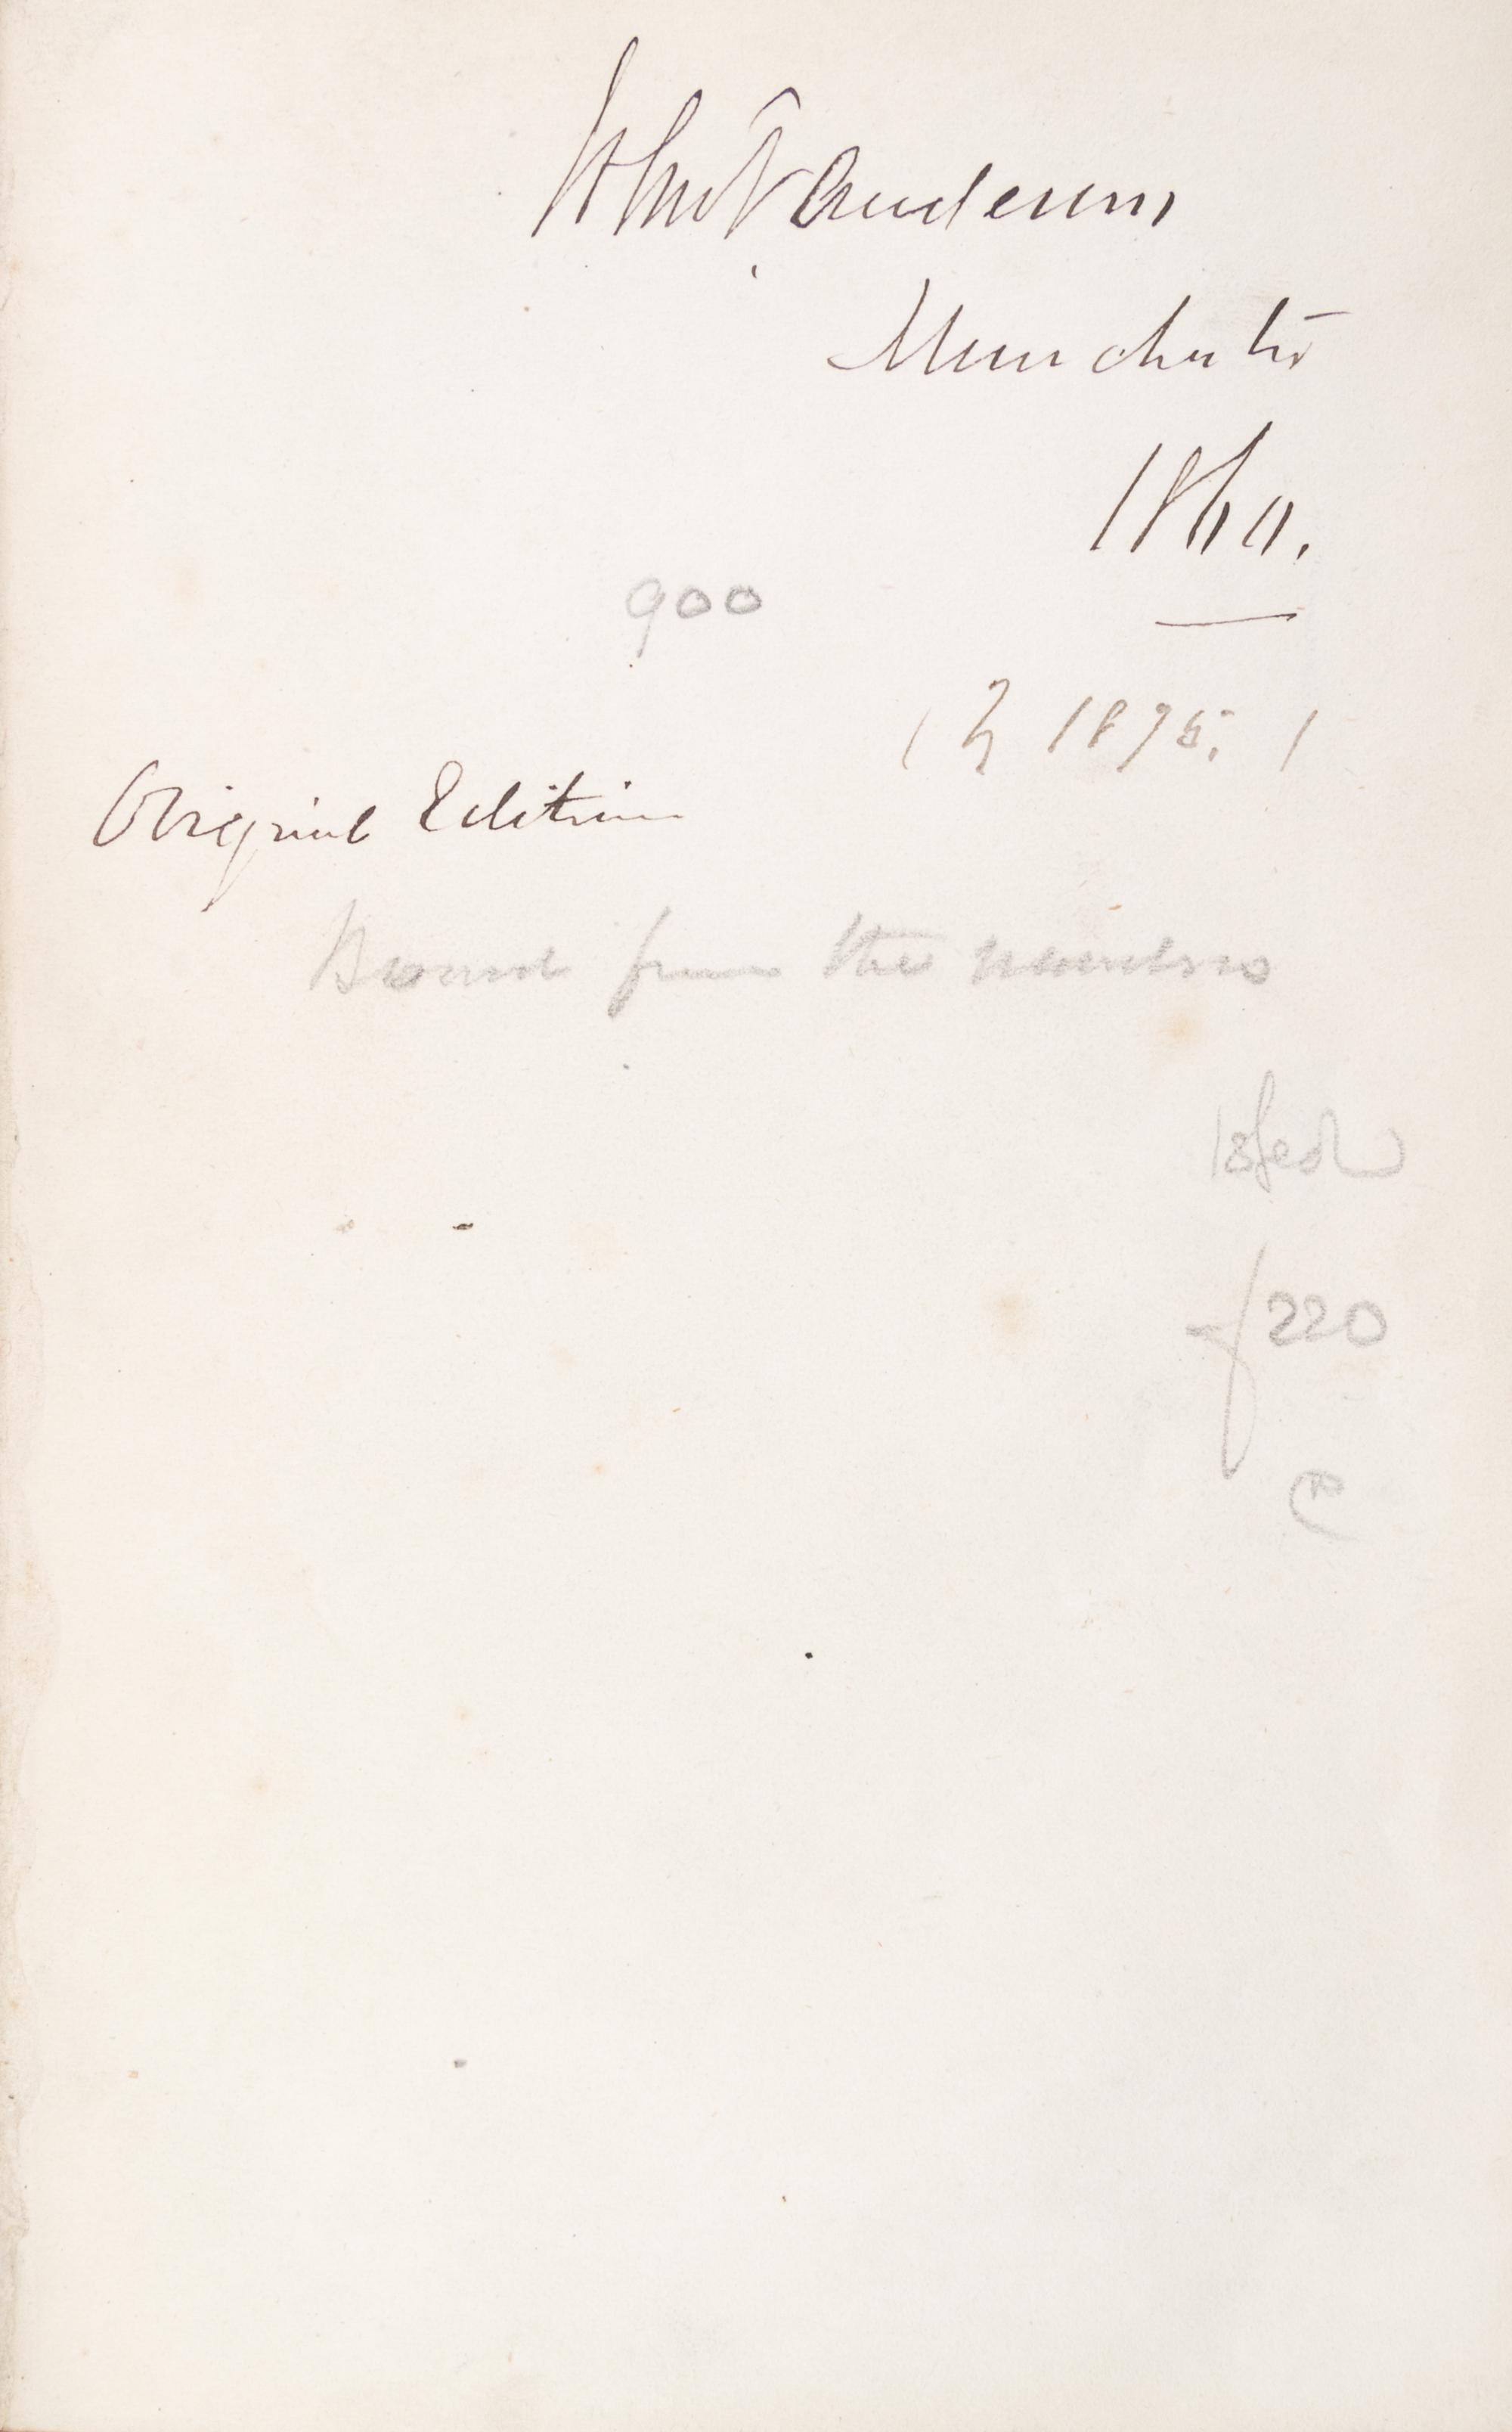 Anderson
Manchester
1860.
900
1875.
Original Edition
Bound from the numbers
1st ed
220